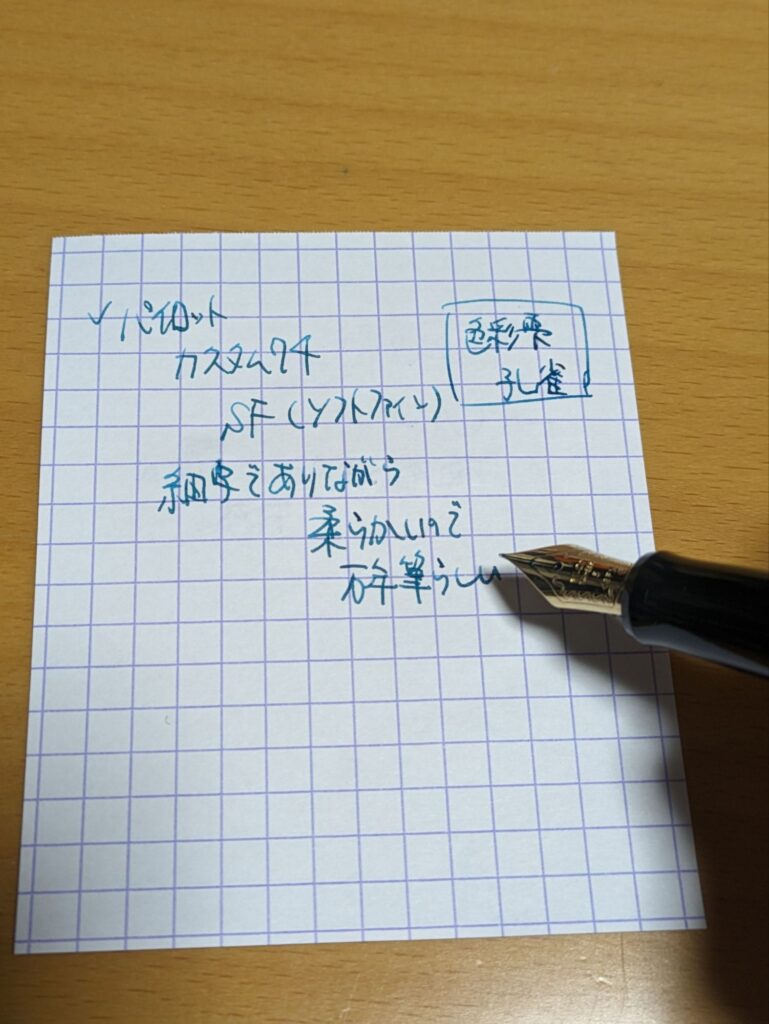 ✓パイロット
カスタム74
SF(ソフトファイン)
細字でありながら
柔らかいので
万年筆らしい
色彩雫
孔雀